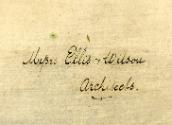 Messrs. Ellis & Wilson
Architects.